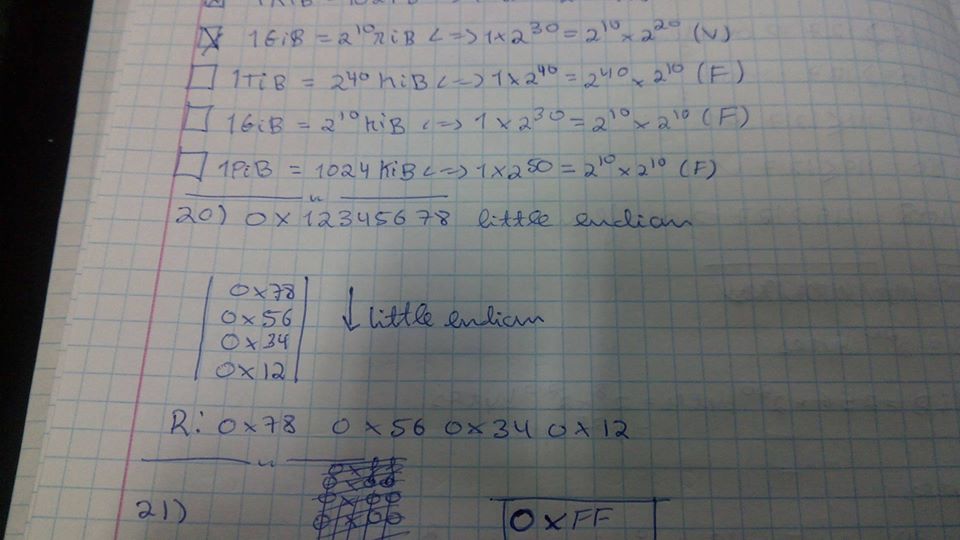 1KiB = 1024 B
☒ 1GiB = 2^10 MiB <=> 1 x 2^30 = 2^10 x 2^20 (V)
☐ 1TiB = 2^40 KiB <=> 1 x 2^40 = 2^40 x 2^10 (F)
☐ 1GiB = 2^10 KiB <=> 1 x 2^30 = 2^10 x 2^10 (F)
☐ 1PiB = 1024 KiB <=> 1 x 2^50 = 2^10 x 2^10 (F)
20) 0x12345678 little endian
0x78
0x56
↓ little endian
0x34
0x12
R: 0x78 0x56 0x34 0x12
21)
0xFF